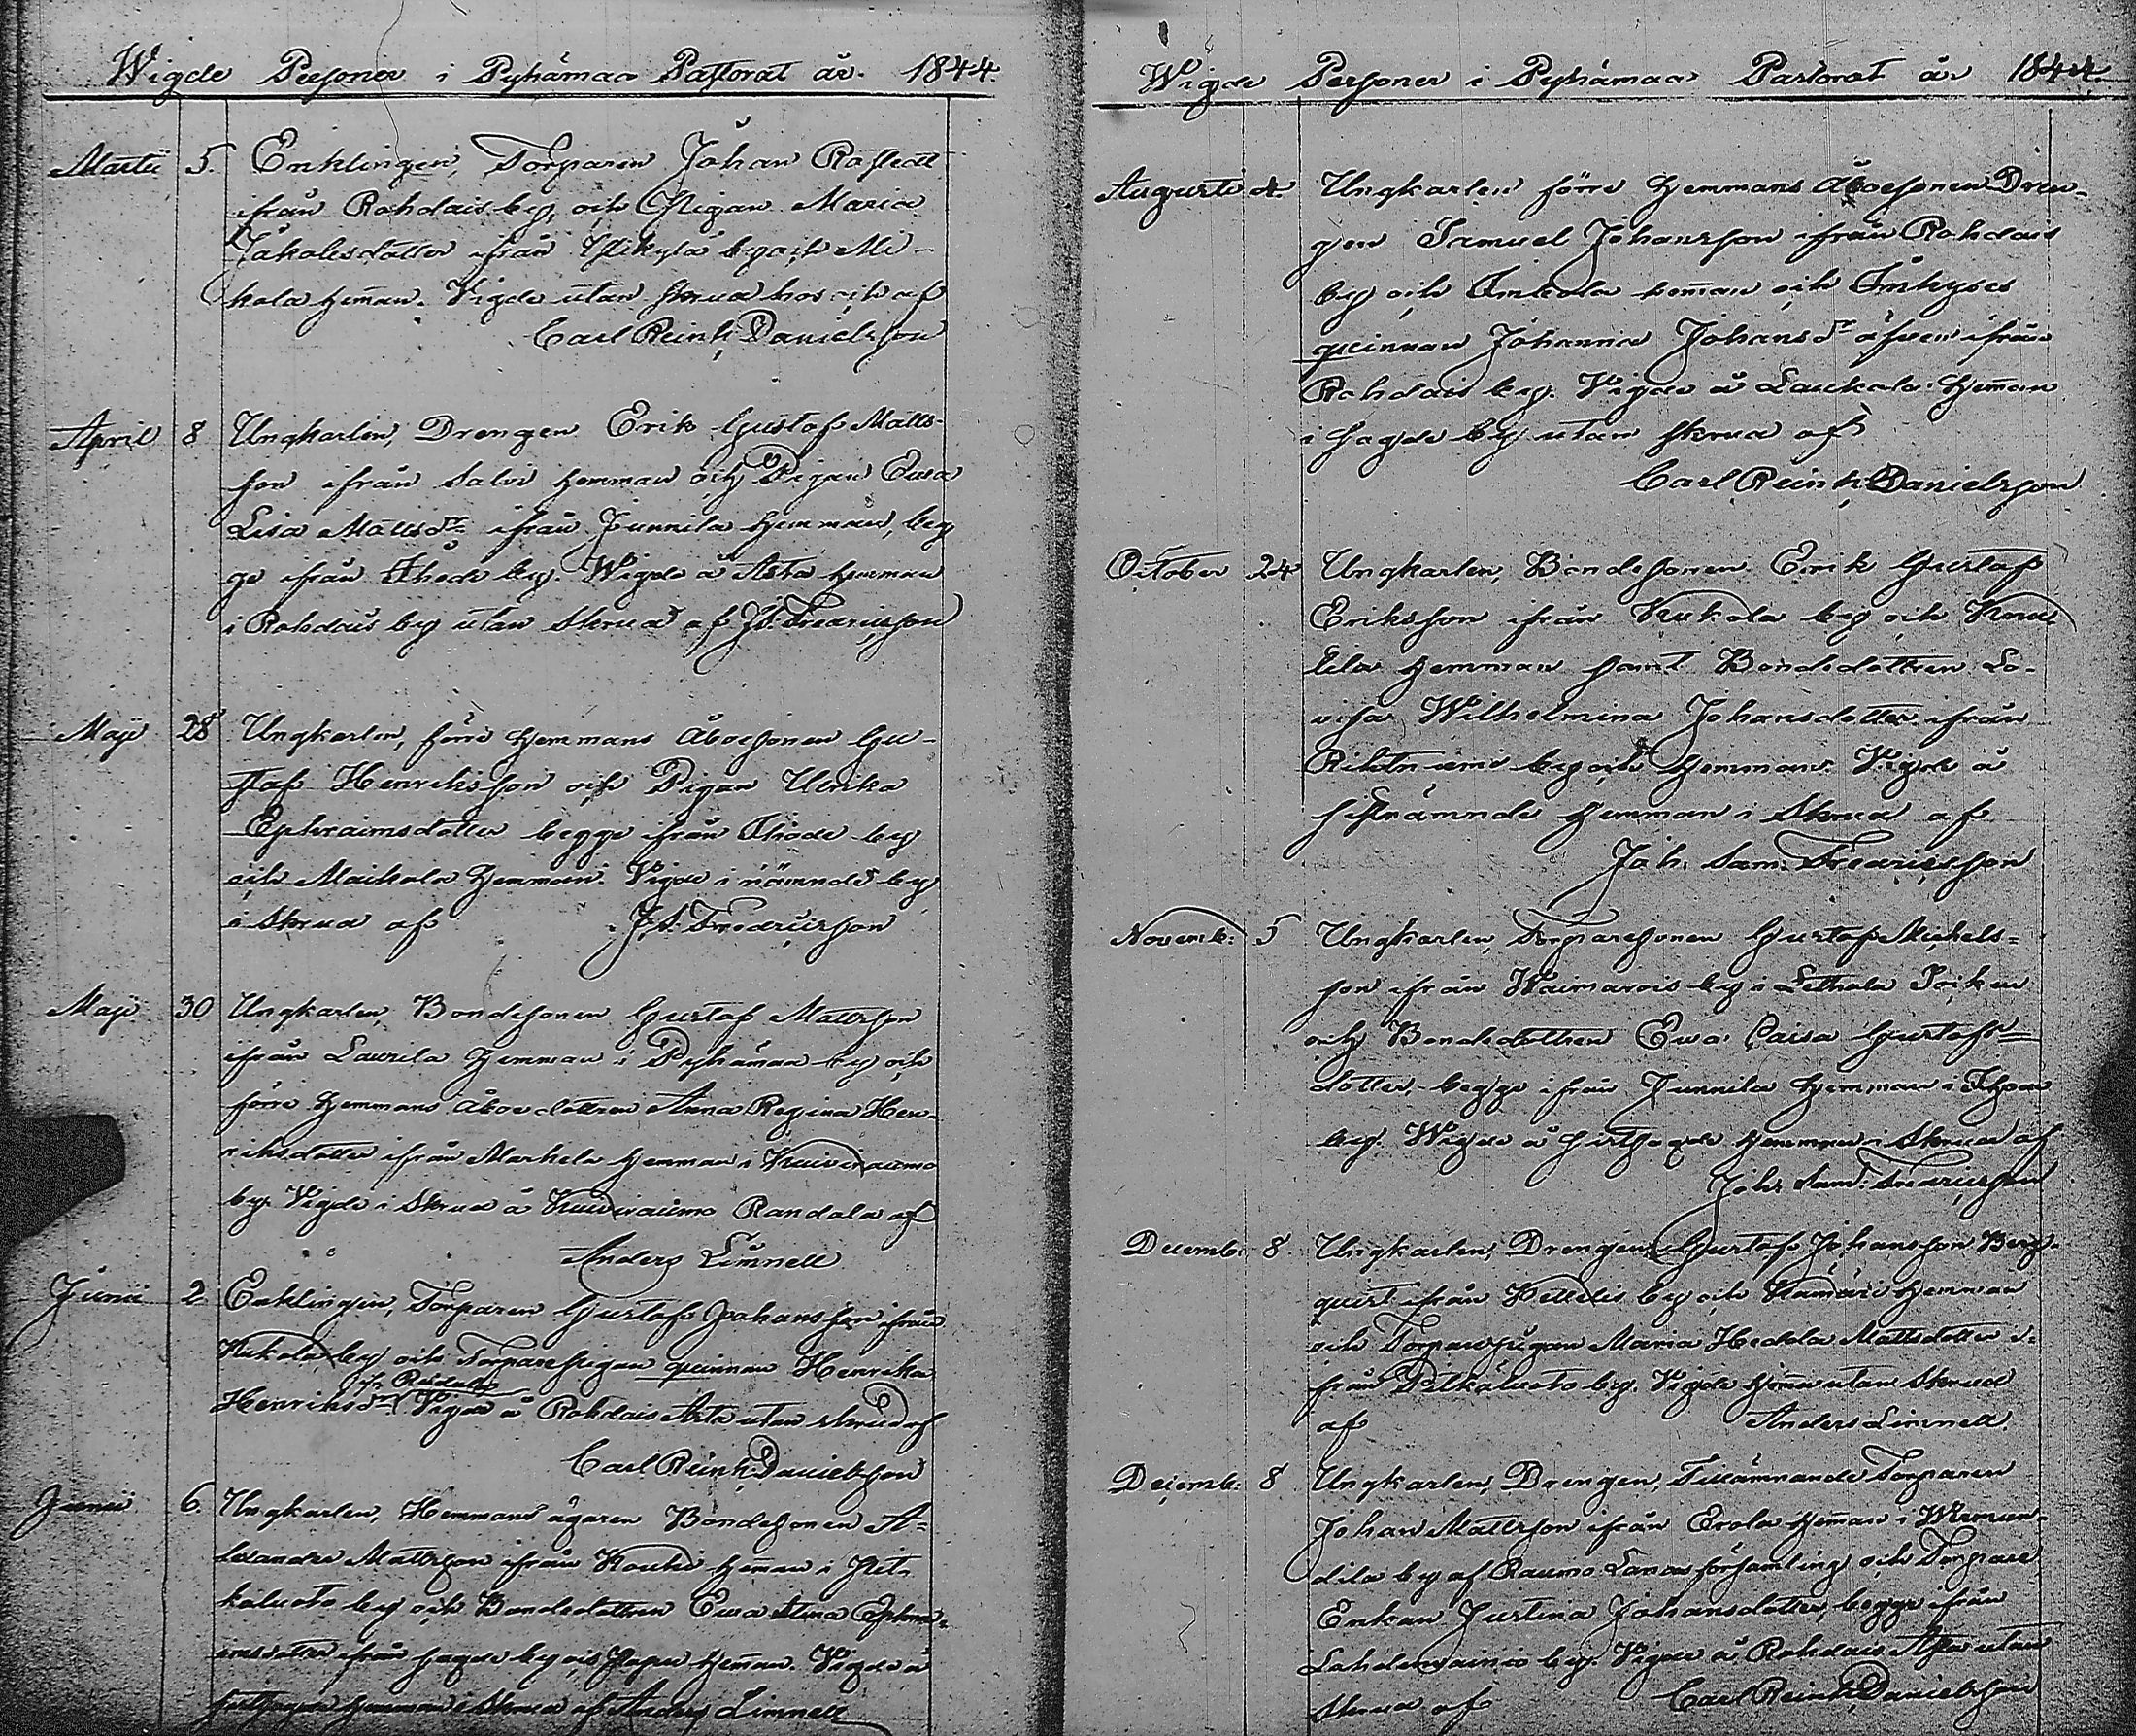 Wigde Personer i Pyhämaa Pastorat år 1844
Martii 5. Enklingen, Torparen Johan Rostedt
ifrån Rohdais by, och Pigan Maria
Jakobsdotter ifrån Ylikylä by och Mi-
kola heman. Vigde utan skrud hos och af
Carl Reinh. Danielsson
April 8 Ungkarlen, Drengen Erik Gustaf Matts-
son ifrån Salvi hemman och Pigan Ewa
Lisa Mattsdr ifrån Junnila hemman, beg
ge ifrån Ihode by. Wigde å Asta hemman
i Rohdais by utan skrud af J. S. Fredricsson
Maji 28 Ungkarlen, förre hemmans åboesonen Gu-
staf Henriksson och Pigan Ulrika
Ephraimsdotter begge ifrån Ihode by
och Maikola hemman. Vigde i nämnde by
i skrud af J. S. Fredricsson
Maji 30 Ungkarlen, Bondesonen Gustaf Mattsson
ifrån Laurila hemman i Pyhämaa by och
förre hemmans åboe dottren Anna Regina Hen-
riksdotter ifrån Markela hemman i Kuivaraumo
by. Vigde i skrud å Kuivaraumo Randala af
Anders Limnell
Junii 2 Enklingen, Torparen Gustaf Johansson ifrån
Kukola by och Torparepigan quinnan Henrika
Henriksdr Vigde å Rohdais Asta utan skrud af
Carl Reinh. Danielsson
Junii 6. Ungkarlen, Hemmans ägaren Bondesonen A-
lexander Mattsson ifrån Kouki heman i Pit-
käluoto by och Bondedottren Ewa Stina Ephra-
imsdotter ifrån by och heman. Vigde å
sistsagde hemman i skrud af Anders Limnell
Wigde Personer i Pyhämaa Pastorat år 1844
Augusti 4. Ungkarlen förre hemmans åboesonen Dren-
gen Samuel Johansson ifrån Rohdais
by och heman och Inhyses
quinnan Johanna Johansdr äfven ifrån
Rohdais by. Vigde å Laukola heman
i by utan skrud af
Carl Reinh. Danielsson
October 24 Ungkarlen, Bondesonen Erik Gustaf
Eriksson ifrån Kukola by och
hemman samt Bondedottren Lo-
visa Wilhelmina Johansdotter ifrån
Rihtniemi by och hemman. Vigde å
sistnämnde hemman i skrud af
Joh. Sam. Fredricsson
Novemb: 5 Ungkarlen, Torparesonen Gustaf Michels-
son ifrån Waimarois by i Lethala Socken
och Bondedottren Ewa Caisa Gustafs-
dotter, begge ifrån Junnila hemman i Ihode
by. Wigde å sistsagde hemman i skrud af
Joh. Sam. Fredricsson
Decemb. 8. Ungkarlen, Drengen Gustaf Johansson Berg-
quist ifrån by och Kamäri hemman
och Torparepigan Maria Hedda Mattsdotter i-
från Pitkäluoto by. Vigde utan skrud
af Anders Limnell
Decemb. 8 Ungkarlen, Drengen, Tillämnande Torparen
Johan Mattsson ifrån Erola heman i Wermun-
dila by af Raumo Lands församling och Torpare
Enkan Justina Johansdotter, begge ifrån
by. Vigde å Rohdais Asta utan
skrud af Carl Reinh. Danielsson